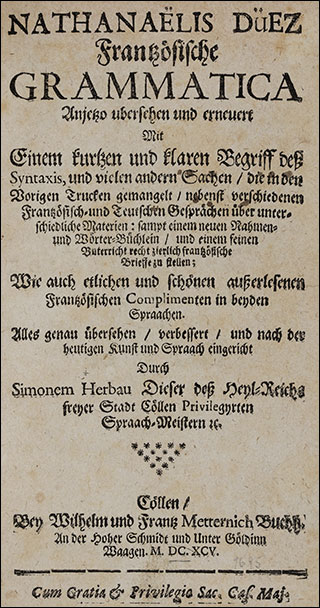 NATHANAËLIS DüEZ
Frantzösische
GRAMMATICA
Anjetzo ubersehen und erneuert
Mit
Einem kurtzen und klaren Begriff deß
Syntaxis, und vielen andern Sachen / die in den
Vorigen Trucken gemangelt / nebenst verschiedenen
Frantzösisch-und Teutschen Gesprächen über unter-
schiedliche Materien: sampt einem neuen Nahmen-
und Wörter-Büchlein / und einem feinen
Unterricht recht zierlich frantzösische
Brieffe zu stellen;
Wie auch etlichen und schönen außerlesenen
Frantzösischen Complimenten in beyden
Spraachen.
Alles genau übersehen / verbessert / und nach der
heutigen Kunst und Spraach eingericht
Durch
Simonem Herbau Dieser deß Heyl-Reichs
freyer Stadt Cöllen Privilegyrten
Spraach-Meistern ꝛc.
Cöllen /
Bey Wilhelm und Frantz Metternich Buchh.
An der Hoher Schmide und Unter Göldinn
Waagen. M. DC. XCV.
Cum Gratia & Privilegio Sac. Cæs. Maj.